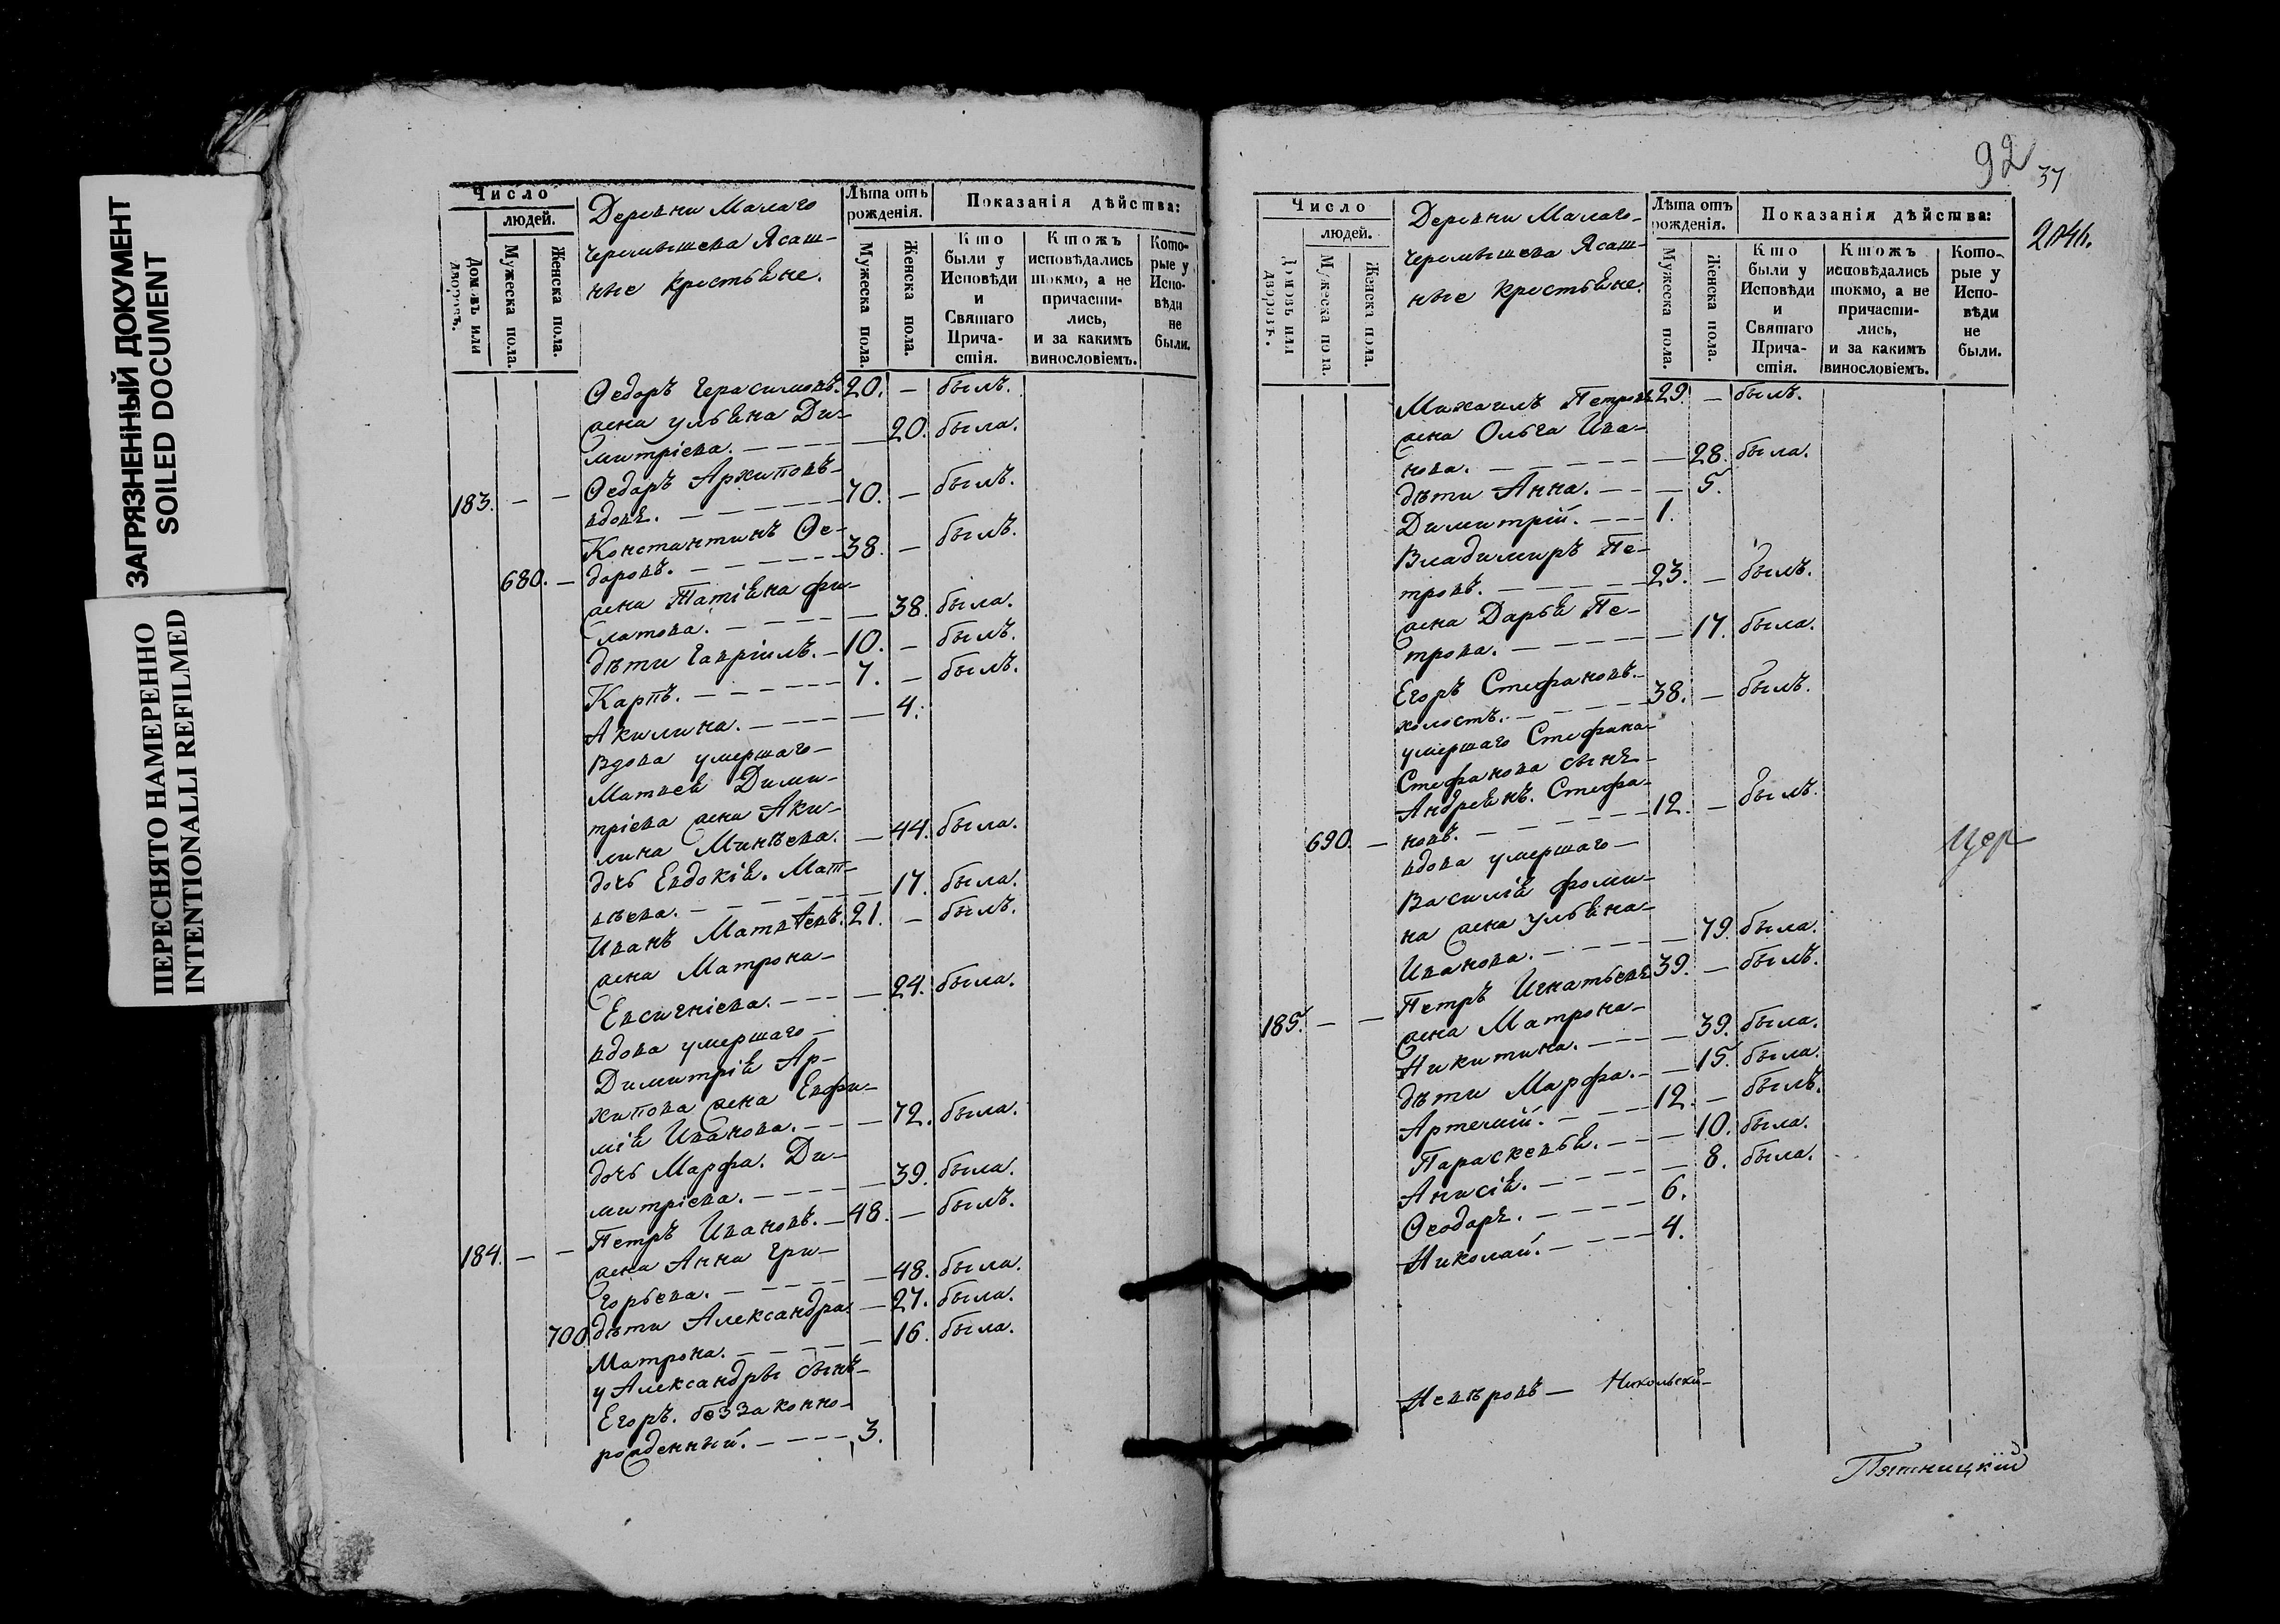 ЗАГРЯЗНЕННЫЙ ДОКУМЕНТ
SOILED DOCUMENT
ПЕРЕСНЯТО НАМЕРЕННО
INTENTIONALLI REFILMED
Число
людей.
Домовъ или дворовъ.
Мужеска пола.
Женска пола.
Деревни Малаго
Черемышева Ясаш-
ные крестьяне.
Лѣта отъ рожденія.
Мужеска пола.
Женска пола.
Показанія дѣйства:
Кто были у Исповѣди и Святаго Прича-стія.
Ктожъ исповѣдались токмо, а не причасти-лись, и за какимъ винословіемъ.
Кото-рые у Испо-вѣди не были.
Ѳедоръ Герасимовъ. 20. — былъ.
жена Ульяна Ди-
митріева. — 20. была.
183. — — Ѳедоръ Архиповъ
вдовъ. 70. — былъ.
Константинъ Ѳе-
680. — доровъ. 38. — былъ.
жена Татіяна Фи-
латова. — 38. была.
дѣти Гавріилъ. 10. — былъ.
Карпъ. 7. — былъ.
Акилина. — 4.
Вдова умершаго
Матвея Дими-
тріева жена Аки-
лина Минѣева. — 44. была.
дочь Евдокія. Мат-
вѣева. — 17. была.
Иванъ Матвѣевъ. 21. — былъ.
жена Матрона
Евсигніева. — 24. была.
вдова умершаго
Димитрія Ар-
хипова жена Евфи-
мія Иванова. — 72. была.
дочь Марфа. Ди-
митріева. — 39. была.
184. — — Петръ Ивановъ. 48. — былъ.
жена Анна Гри-
горьева. — 48. была.
700. дѣти Александра. — 27. была.
Матрона. — 16. была.
у Александры сынъ
Егоръ. беззаконно-
рожденный. 3.
92
37
Число
людей.
Домовъ или дворовъ.
Мужеска пола.
Женска пола.
Деревни Малаго
Черемышева Ясаш-
ные крестьяне.
Лѣта отъ рожденія.
Мужеска пола.
Женска пола.
Показанія дѣйства:
Кто были у Исповѣди и Святаго Прича-стія.
Ктожъ исповѣдались токмо, а не причасти-лись, и за какимъ винословіемъ.
Кото-рые у Испо-вѣди не были.
Михаилъ Петровъ 29. — былъ.
жена Ольга Ива-
нова. — 28. была.
дѣти Анна. — 5.
Димитрій. 1.
Владимиръ Пе-
тровъ. 23. — былъ.
жена Дарья Пе-
трова. — 17. была.
Егоръ Стефановъ.
холостъ. 38. — былъ.
умершаго Стефана
Стефанова сынъ
Андреянъ. Стефа-
690. — новъ. 12. — былъ.
вдова умершаго
Василія Фоми-
на жена Ульяна
Иванова. — 79. была.
185. — — Петръ Игнатьевъ 39. — былъ.
жена Матрона
Никитина. — 39. была.
дѣти Марфа. — 15. была.
Артемій. 12. — былъ.
Параскевья. — 10. была.
Анисія. — 8. была.
Ѳеодоръ. 6.
Николай. 4.
цер
Невѣровъ — Никольскій
Пятницкій